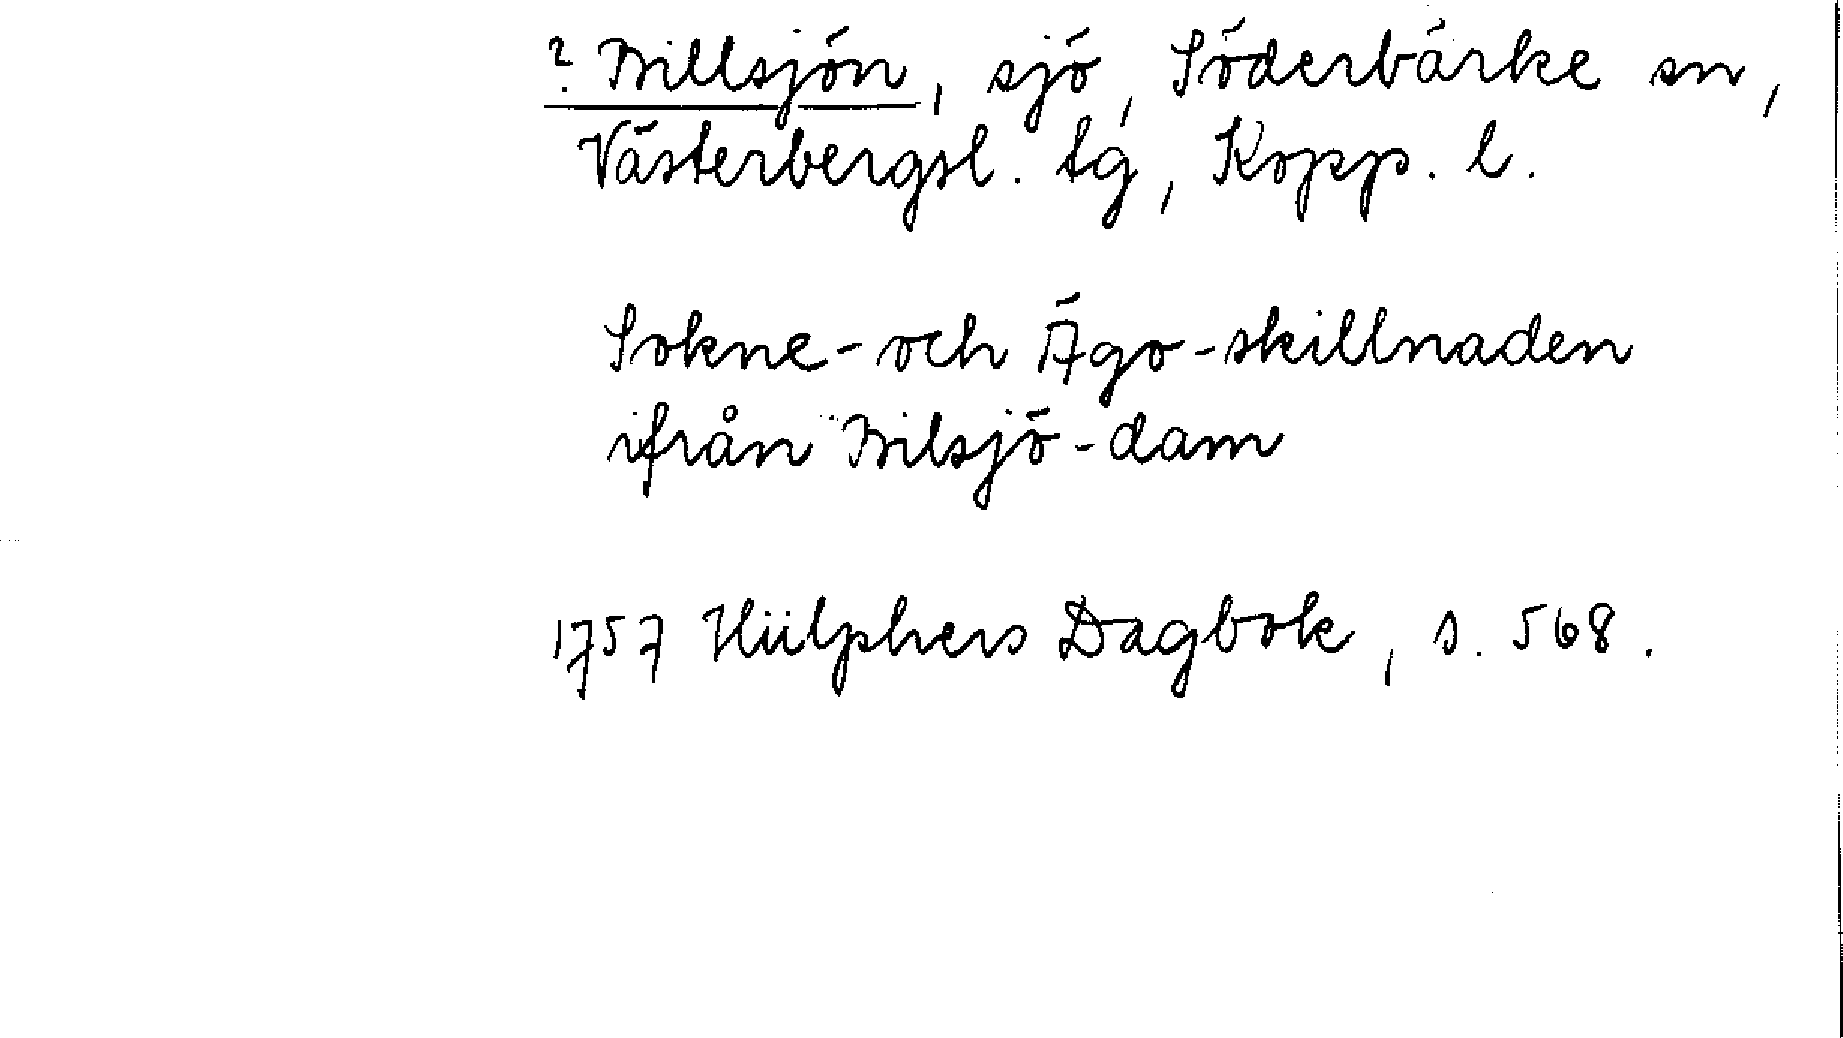 ? Billsjön, sjö, Söderbärke sn,
Västerbergsl. tg, Kopp. l.
Sokne- och Ägo-skillnaden
ifrån Bilsjö-dam
1757 Hülphers Dagbok, s. 568.